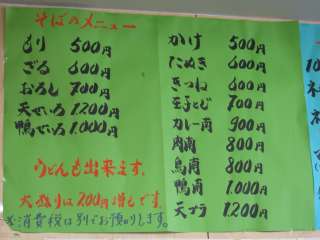 そばのメニュー
もり 500円
ざる 600円
おろし 700円
天せいろ 1200円
鴨せいろ 1,000円
うどんも出来ます。
大盛りは200円増しです。
※消費税は別でお預りします。
かけ 500円
たぬき 600円
きつね 600円
玉子とじ 700円
カレー南 900円
肉南 800円
鳥南 800円
鴨南 1,000円
天プラ 1,200円